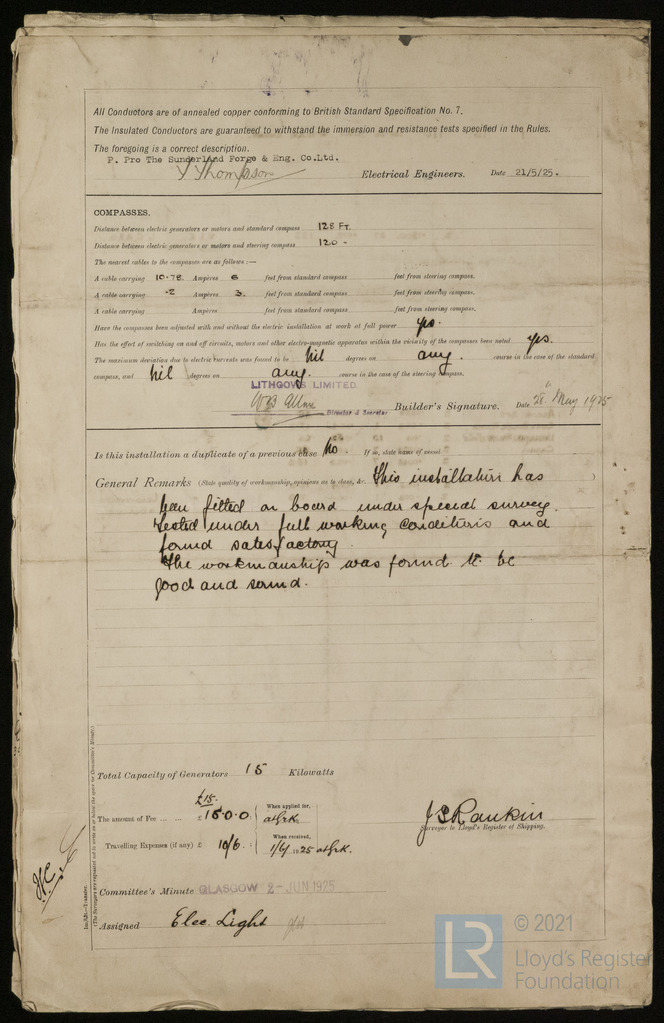 All Conductors are of annealed copper conforming to British Standard Specification No. 7.
The Insulated Conductors are guaranteed to withstand the immersion and resistance tests specified in the Rules.
The foregoing is a correct description.
P. Pro The Sunderland Forge & Eng. Co.Ltd.
Thompson Electrical Engineers. Date 21/5/25.
COMPASSES.
Distance between electric generators or motors and standard compass 128 FT.
Distance between electric generators or motors and steering compass 120 -
The nearest cables to the compasses are as follows:—
A cable carrying 10.78 Ampères 6 feet from standard compass feet from steering compass.
A cable carrying .2 Ampères 3. feet from standard compass feet from steering compass.
A cable carrying Ampères feet from standard compass feet from steering compass.
Have the compasses been adjusted with and without the electric installation at work at full power yes.
Has the effect of switching on and off circuits, motors and other electro-magnetic apparatus within the vicinity of the compasses been noted yes.
The maximum deviation due to electric currents was found to be Nil degrees on any. course in the case of the standard
compass, and Nil degrees on any. course in the case of the steering compass.
LITHGOWS LIMITED
Director & Secretary Builder's Signature. Date 28th May 1925
Is this installation a duplicate of a previous case No. If so, state name of vessel
General Remarks (State quality of workmanship, opinions as to class, &c. This installation has )
been fitted on board under special survey.
Tested under full working conditions and
found satisfactory.
The workmanship was found to be
good and sound.
Total Capacity of Generators 15 Kilowatts
£15.
The amount of Fee ... ... £15.0.0. When applied for,
Travelling Expenses (if any) £ 10/6 : When received,
1/6/1925
J S Rankin
Surveyor to Lloyd's Register of Shipping.
Committee's Minute GLASGOW 2-JUN 1925
Assigned Elec. Light
© 2021
LR
Lloyd's Register
Foundation